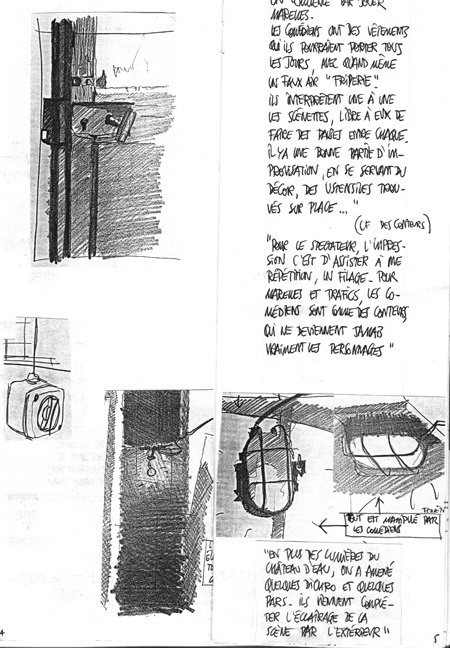 PAR JOUER
MARELLES.
LES COMÉDIENS ONT DES VÊTEMENTS
QU'ILS POURRAIENT PORTER TOUS
LES JOURS, AVEC QUAND MÊME
UN FAUX AIR "FRIPERIE".
ILS INTERPRÊTENT UNE À UNE
LES SCÉNETTES, LIBRE À EUX DE
FAIRE DES PAUSES ENTRE CHAQUE.
IL Y A UNE BONNE PARTIE D'IM-
PROVISATION, EN SE SERVANT DU
DÉCOR, DES USTENSILES TROU-
VÉS SUR PLACE... "
(CF DES CONTEURS)
"POUR LE SPECTATEUR, L'IMPRES-
SION C'EST D'ASSISTER À UNE
RÉPÉTITION, UN FILAGE. POUR
MARELLES ET TRAFICS, LES CO-
MÉDIENS SONT COMME DES CONTEURS
QUI NE DEVIENNENT JAMAIS
VRAIMENT LES PERSONNAGES "
TOUT EST MANIPULÉ PAR
LES COMÉDIENS
"EN PLUS DES LUMIÈRES DU
CHÂTEAU D'EAU, ON A AMENÉ
QUELQUES DICHRO ET QUELQUES
PARS. ILS VIENNENT COMPLÉ-
TER L'ÉCLAIRAGE DE LA
SCÈNE PAR L'EXTÉRIEUR"
4
5